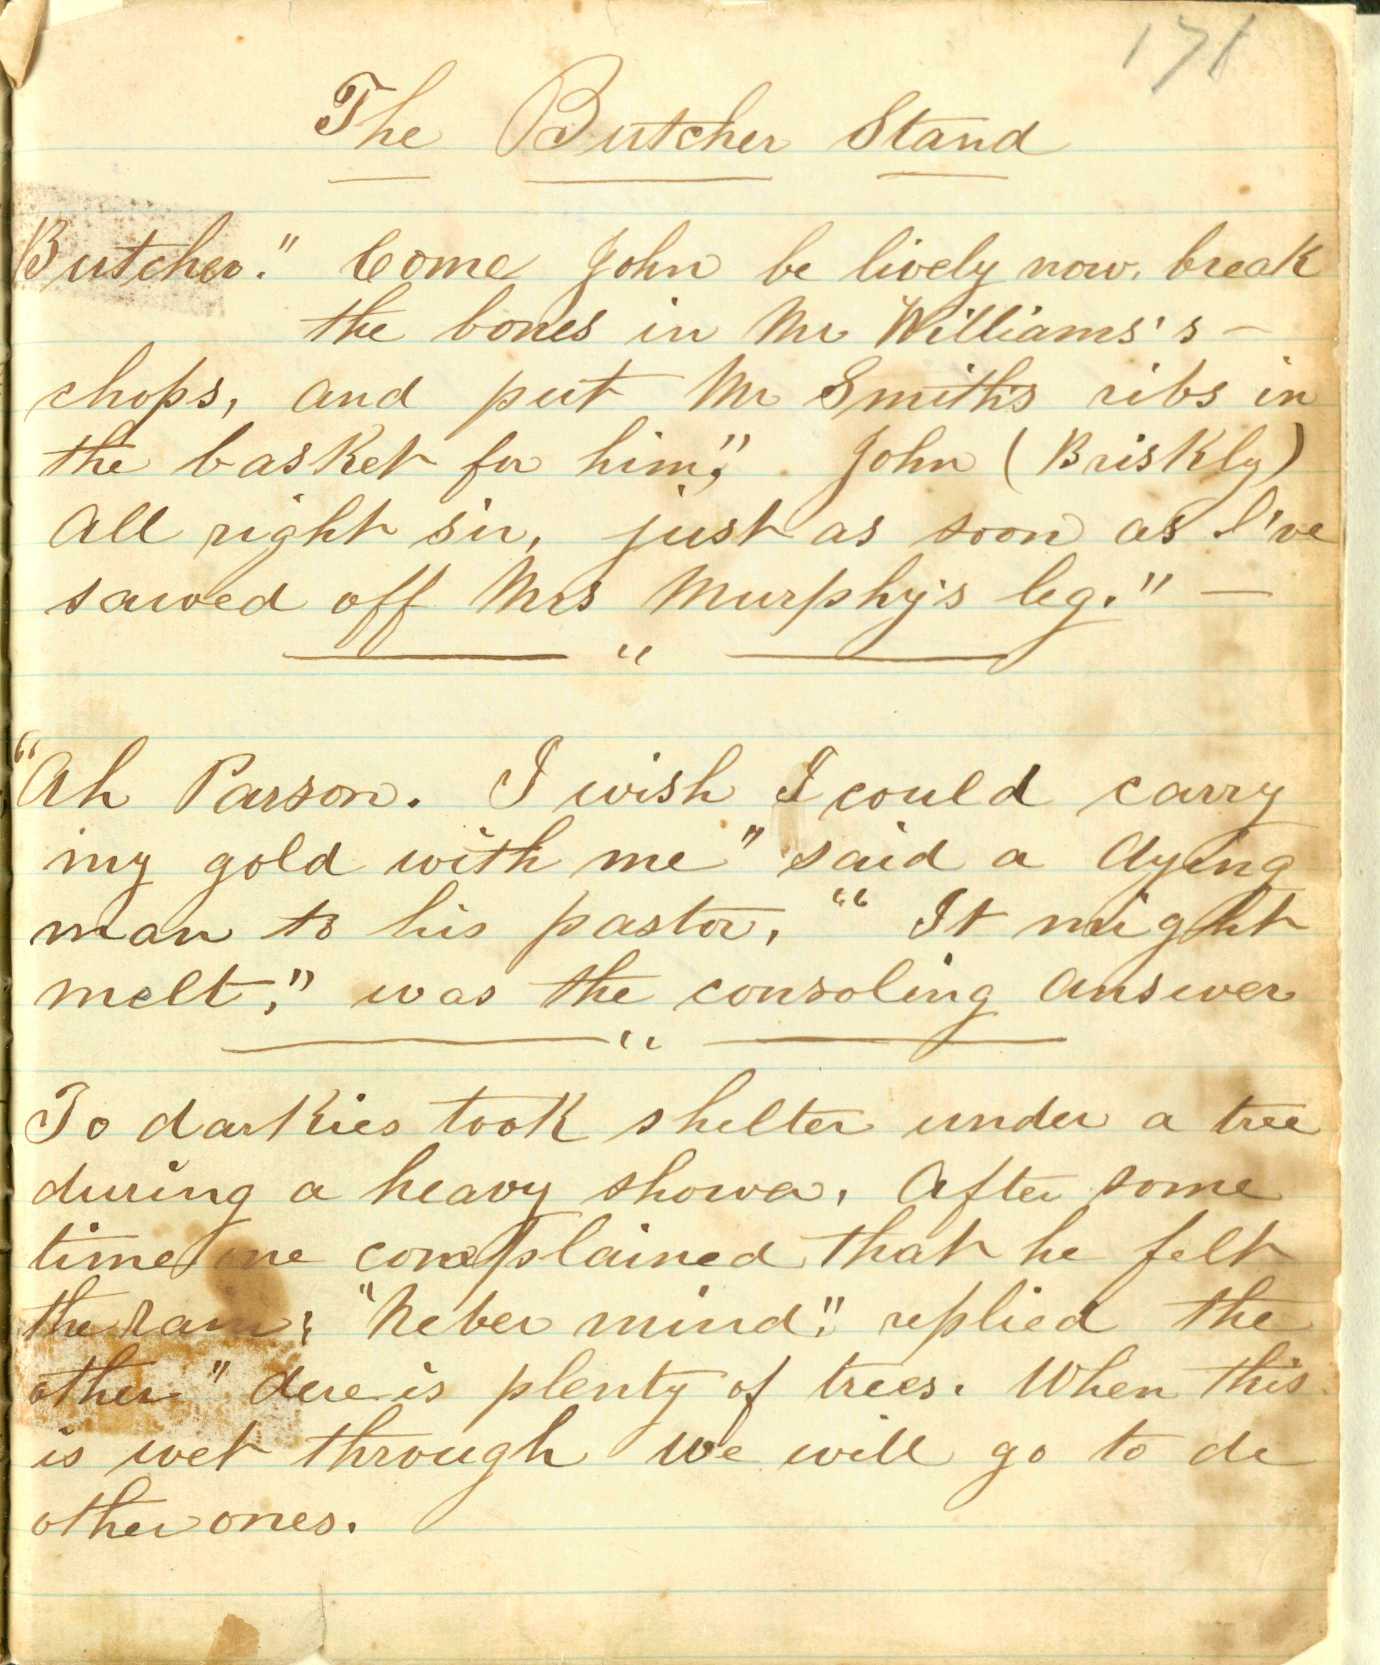 171
The Butcher Stand
Butcher." Come John be lively now, break
the bones in Mr Williams's –
chops, and put Mr Smith's ribs in
the basket for him," . John (Briskly)
All right sir, just as soon as I've
sawed off Mrs Murphy's leg." —
"
"Ah Parson. I wish I could carry
my gold with me" said a dying
man to his pastor, "" It might
melt," was the consoling answer
"
To darkies took shelter under a tree
during a heavy shower, After some
time one complained that he felt
the rain; "Neber mind", replied the
other" dere is plenty of trees. When this
is wet through we will go to de
other ones.